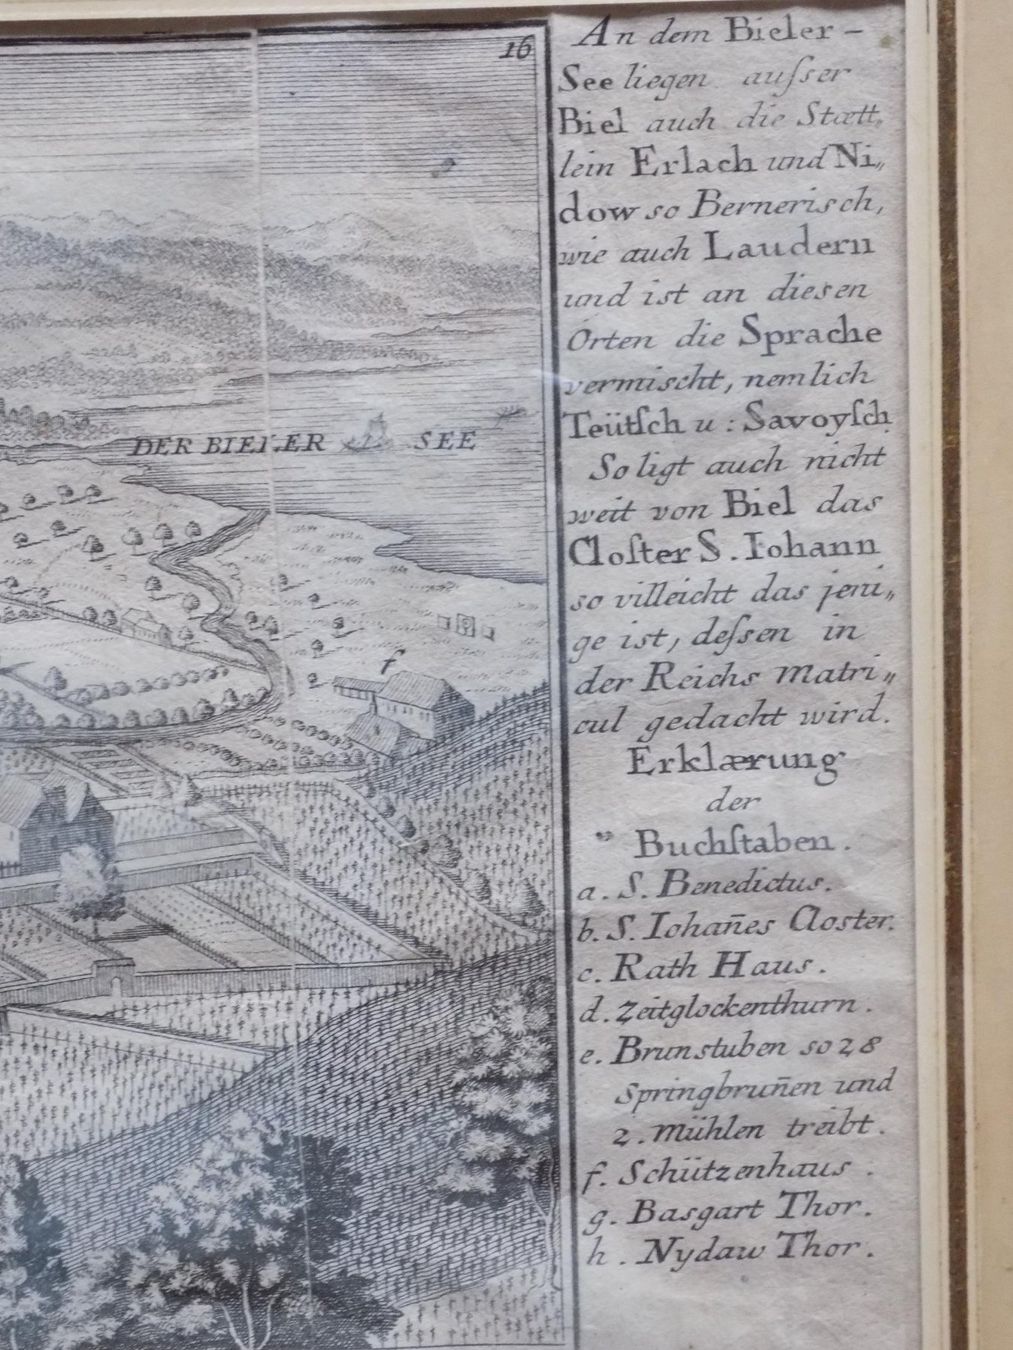 16
DER BIELER SEE
f
An dem Bieler-
See liegen ausſer
Biel auch die Stætt„
lein Erlach und Ni„
dow so Bernerisch,
wie auch Laudern
und ist an diesen
Orten die Sprache
vermischt, nemlich
Teütſch u: Savoyſch
So ligt auch nicht
weit von Biel das
Cloſter S. Iohann
so villeicht das jeni„
ge ist, deſsen in
der Reichs Matri„
cul gedacht wird.
Erklærung
der
Buchſtaben.
a. S. Benedictus.
b. S. Iohan̄es Closter.
c. Rath Haus.
d. Zeitglockenthurn.
e. Brunstuben so 28
Springbrun̄en und
2. Mühlen treibt.
f. Schützenhaus.
g. Basgart Thor.
h. Nydaw Thor.